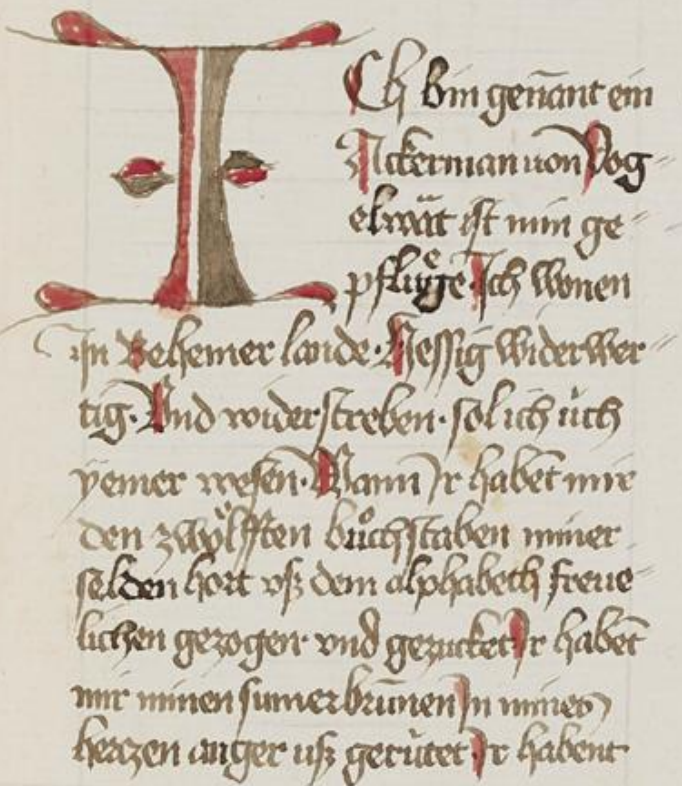 ICh bin genāant ein
Ackerman uon Vog-
elwät ist min ge-
pflu̍ge Ich wonen
In Behemer lande· Hessig widerwer-
tig· Vnd widerstreben· sol ich üch
yemer wesen· Wann Ir habēt mir
den zwo̍lfften bůchstaben miner
selden hort vß dem alphabeth freue-
lichen gezogen· vnd gezucket Ir habēt
mir minen sumer brūnen In mines
herczen anger uß gerütet Ir habent